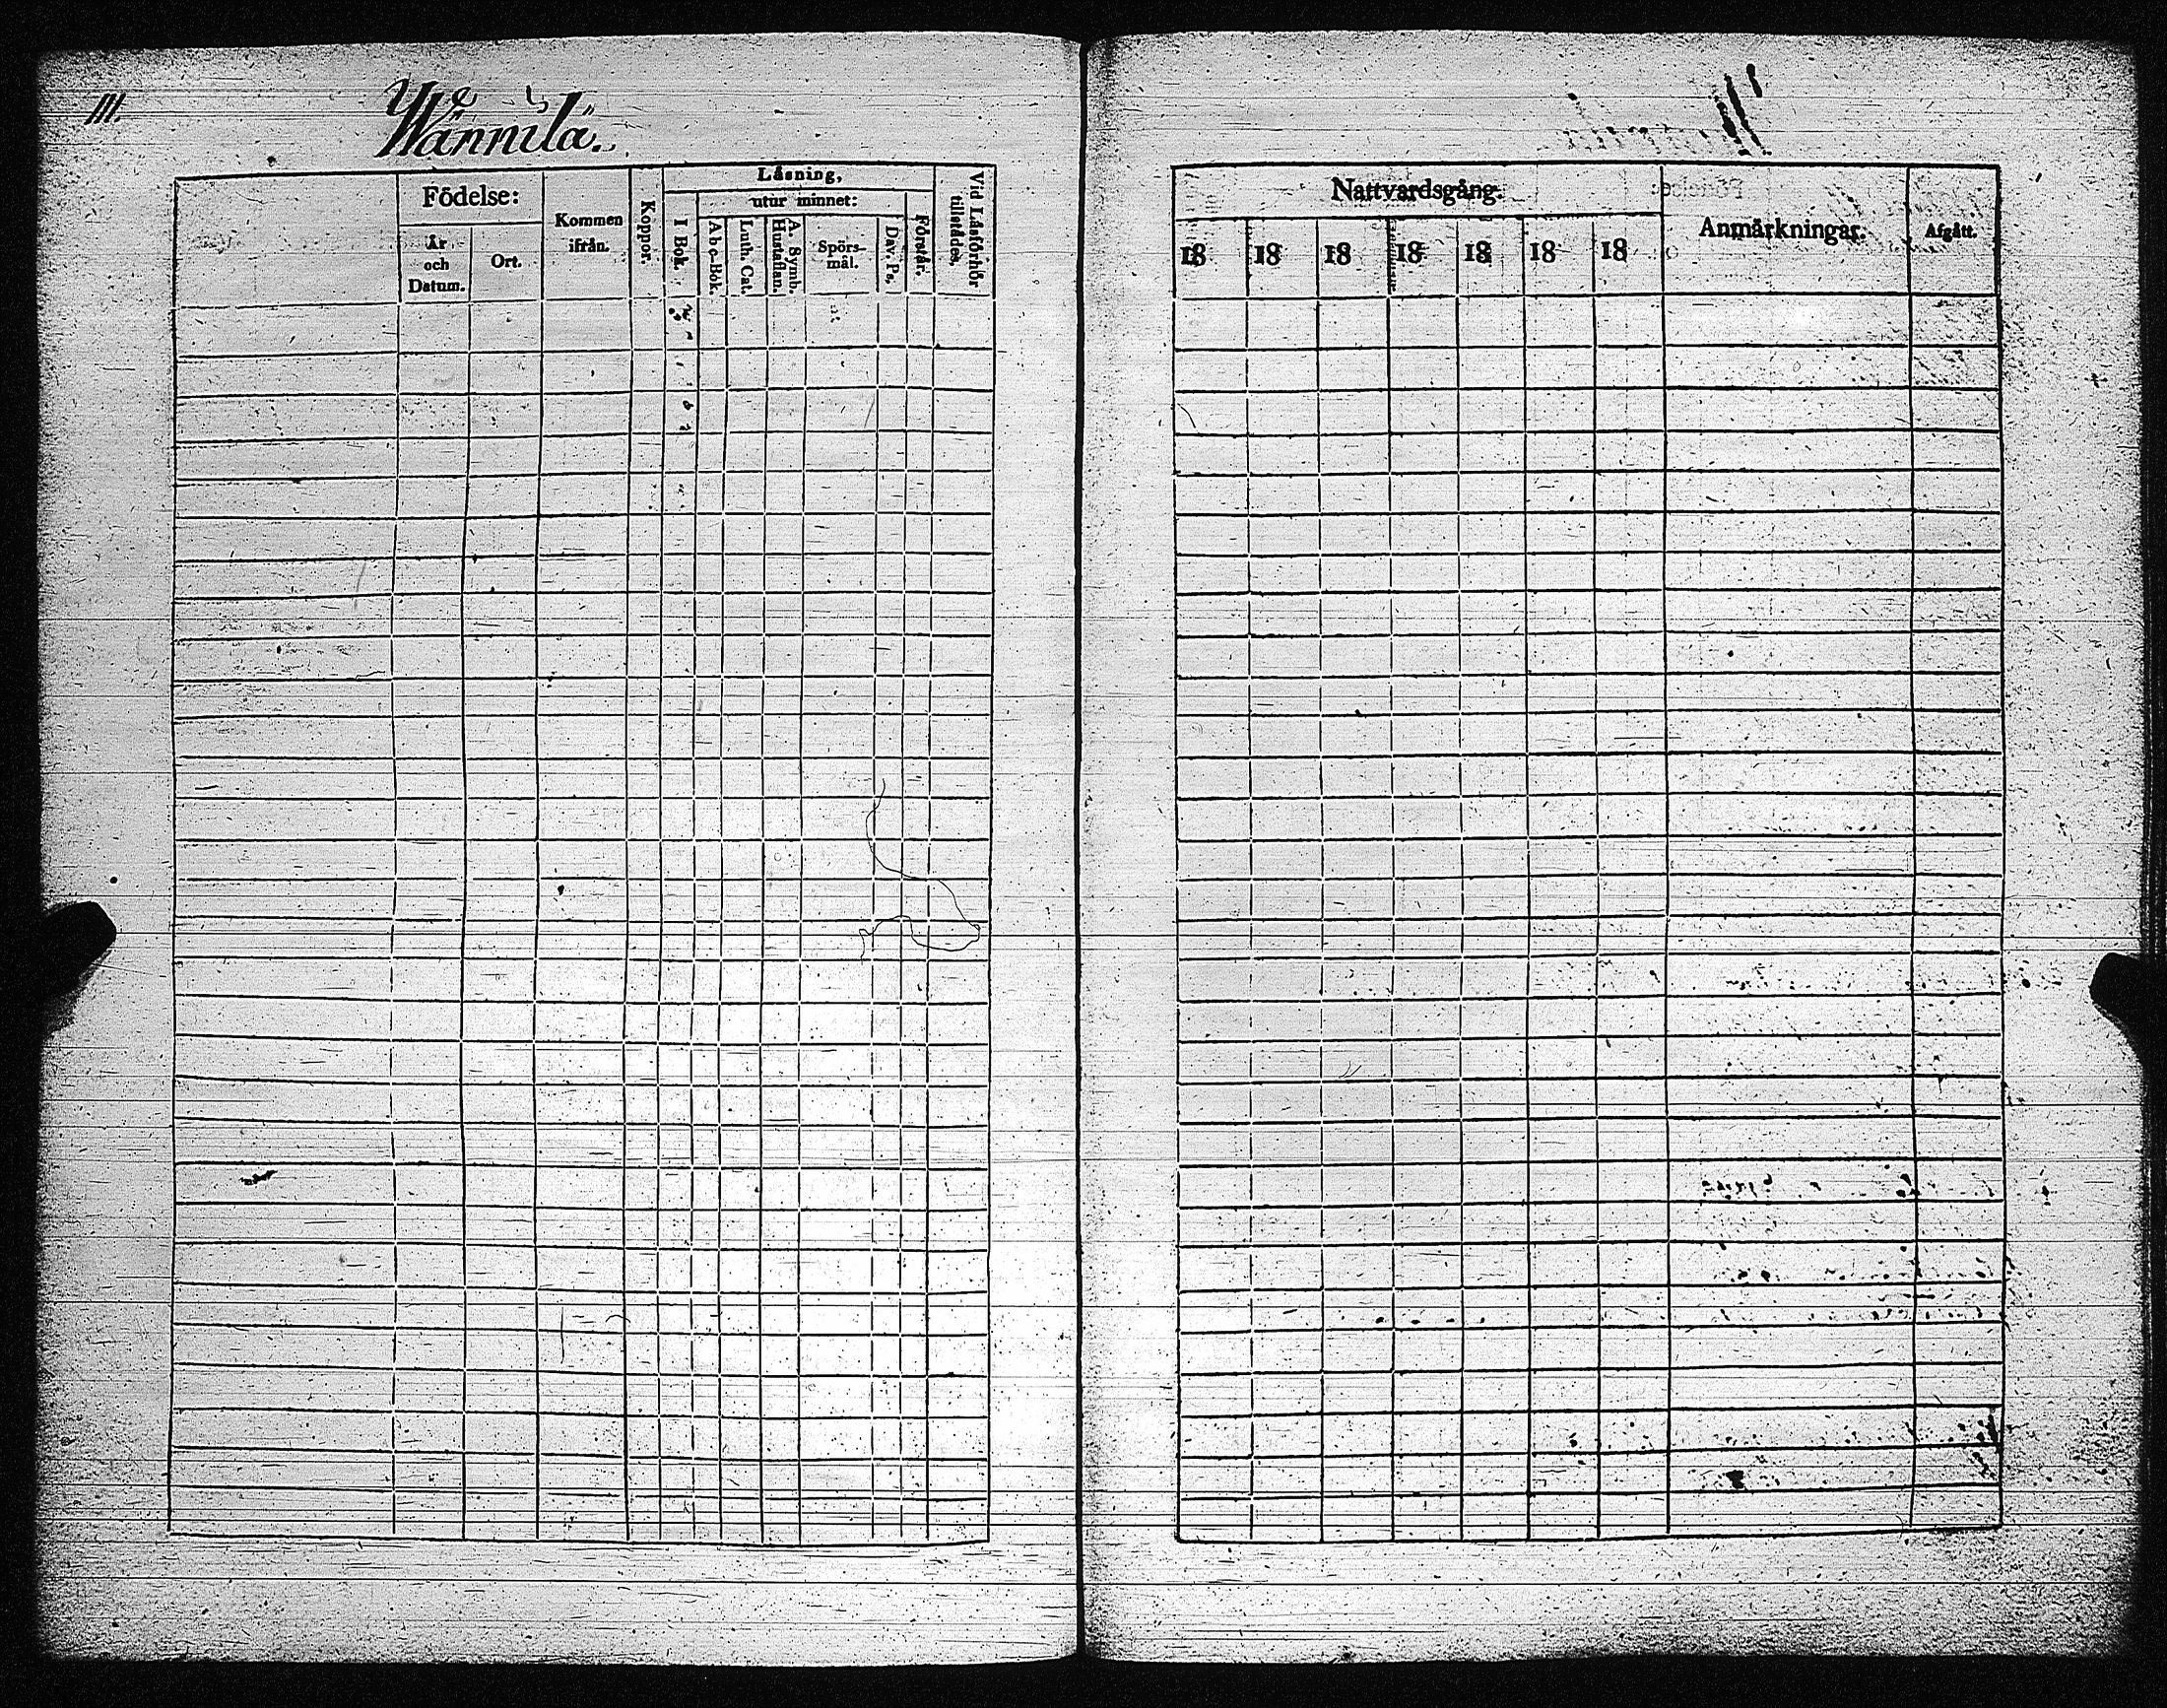 111.
Wännilä.
Födelse:
År och Datum.
Ort.
Kommen ifrån.
Koppor.
Läsning,
I Bok.
utur minnet:
Abc-Bok.
Luth. Cat.
A. Symb. Hustaflan.
Spörs-mål.
Dav. Ps.
Förstår.
Vid Läsförhör tillstädes.
Nattvardsgång.
18 18 18 18 18 18 18
Anmärkningar.
Afgått.